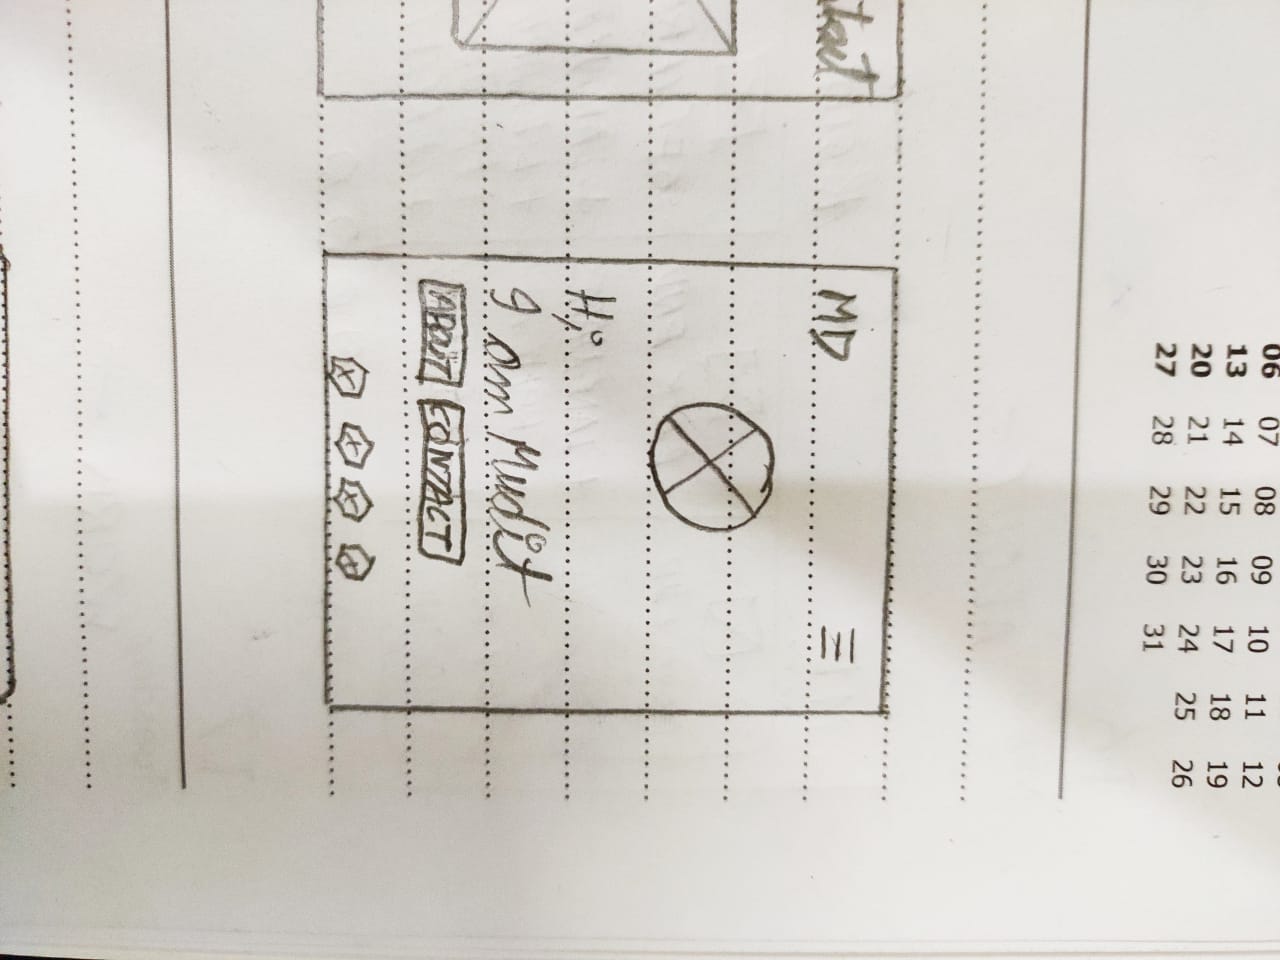 06 07 08 09 10 11 12
13 14 15 16 17 18 19
20 21 22 23 24 25 26
27 28 29 30 31
MD
Hi,
I am Mudit
ABOUT CONTACT